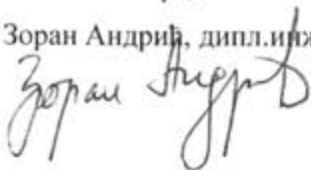 Зоран Андрић, дипл.инж
Зоран Андрић